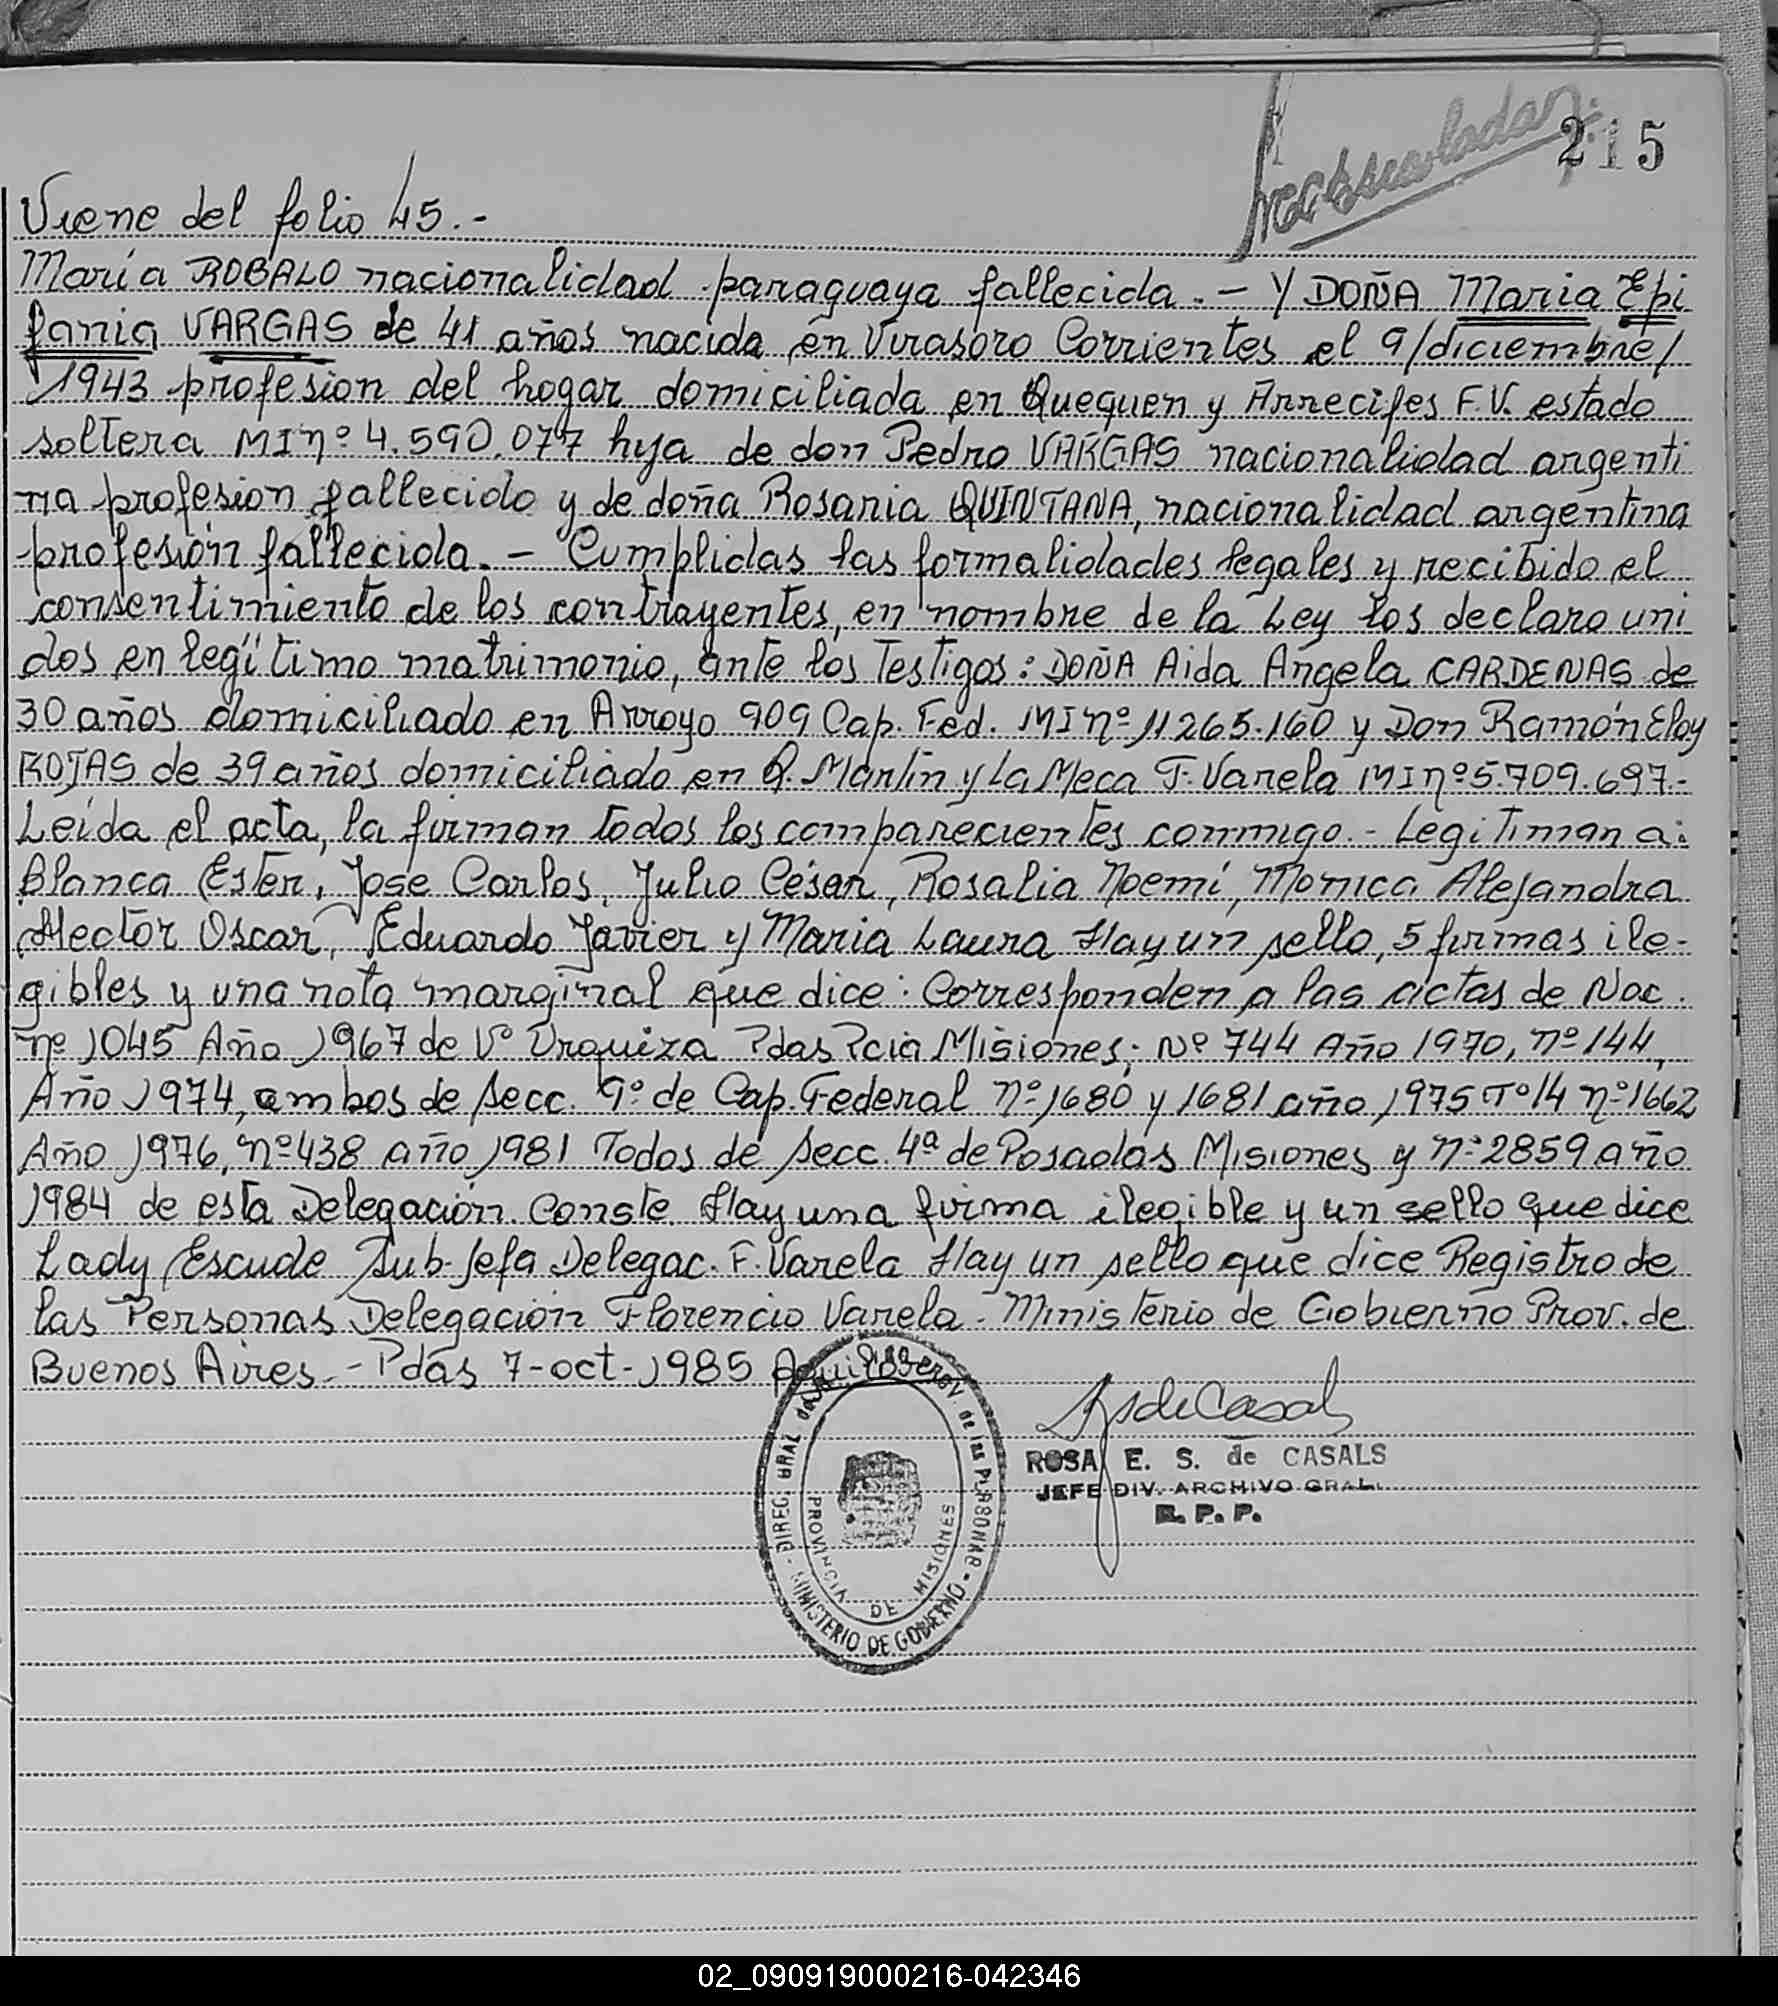 215
Viene del folio 45.-
María ROBALO nacionalidad paraguaya fallecida.- Y DOÑA Maria Epi
fania VARGAS de 41 años nacida en Virasoro Corrientes el 9/diciembre/
1943 profesion del hogar domiciliada en Quequen y Arrecifes F.V. estado
soltera MI nº 4.590.077 hija de don Pedro VARGAS nacionalidad argenti
na profesion fallecido y de doña Rosaria QUINTANA, nacionalidad argentina
profesión fallecida.- Cumplidas las formalidades legales y recibido el
consentimiento de los contrayentes, en nombre de la Ley los declaro uni
dos en legitimo matrimonio, ante los Testigos: DOÑA Aida Angela CARDENAS de
30 años domiciliado en Arroyo 909 Cap. Fed. MI nº 11265.160 y Don Ramón Eloy
ROJAS de 39 años domiciliado en Q. Martin y La Meca F. Varela MI nº 5.709.697.-
Leída el acta, la firman todos los comparecientes conmigo.- Legitiman a:
Blanca Ester, Jose Carlos, Julio César, Rosalia Noemí, Monica Alejandra
Hector Oscar, Eduardo Javier y Maria Laura Hay un sello, 5 firmas ile-
gibles y una nota marginal que dice: Corresponden a las actas de Nac.
nº 1045 Año 1967 de Vº Urquiza Pdas Pcia Misiones; Nº 744 Año 1970, nº 144,
Año 1974, ambos de secc. 9º de Cap. Federal nº 1680 y 1681 año 1975 Tº 14 nº 1662
Año 1976, nº 438 año 1981 Todos de secc. 4ª de Posadas Misiones y nº 2859 año
1984 de esta Delegación. Conste Hay una firma ilegible y un sello que dice
Lady Escude Sub-Jefa Delegac. F. Varela Hay un sello que dice Registro de
las Personas Delegación Florencio Varela. Ministerio de Gobierno Prov. de
Buenos Aires.- Pdas 7-oct-1985
ROSA E. S. de CASALS
JEFE DIV. ARCHIVO GRAL.
R. P. P.
MINISTERIO DE GOBIERNO
PROVINCIA DE MISIONES
02_090919000216-042346